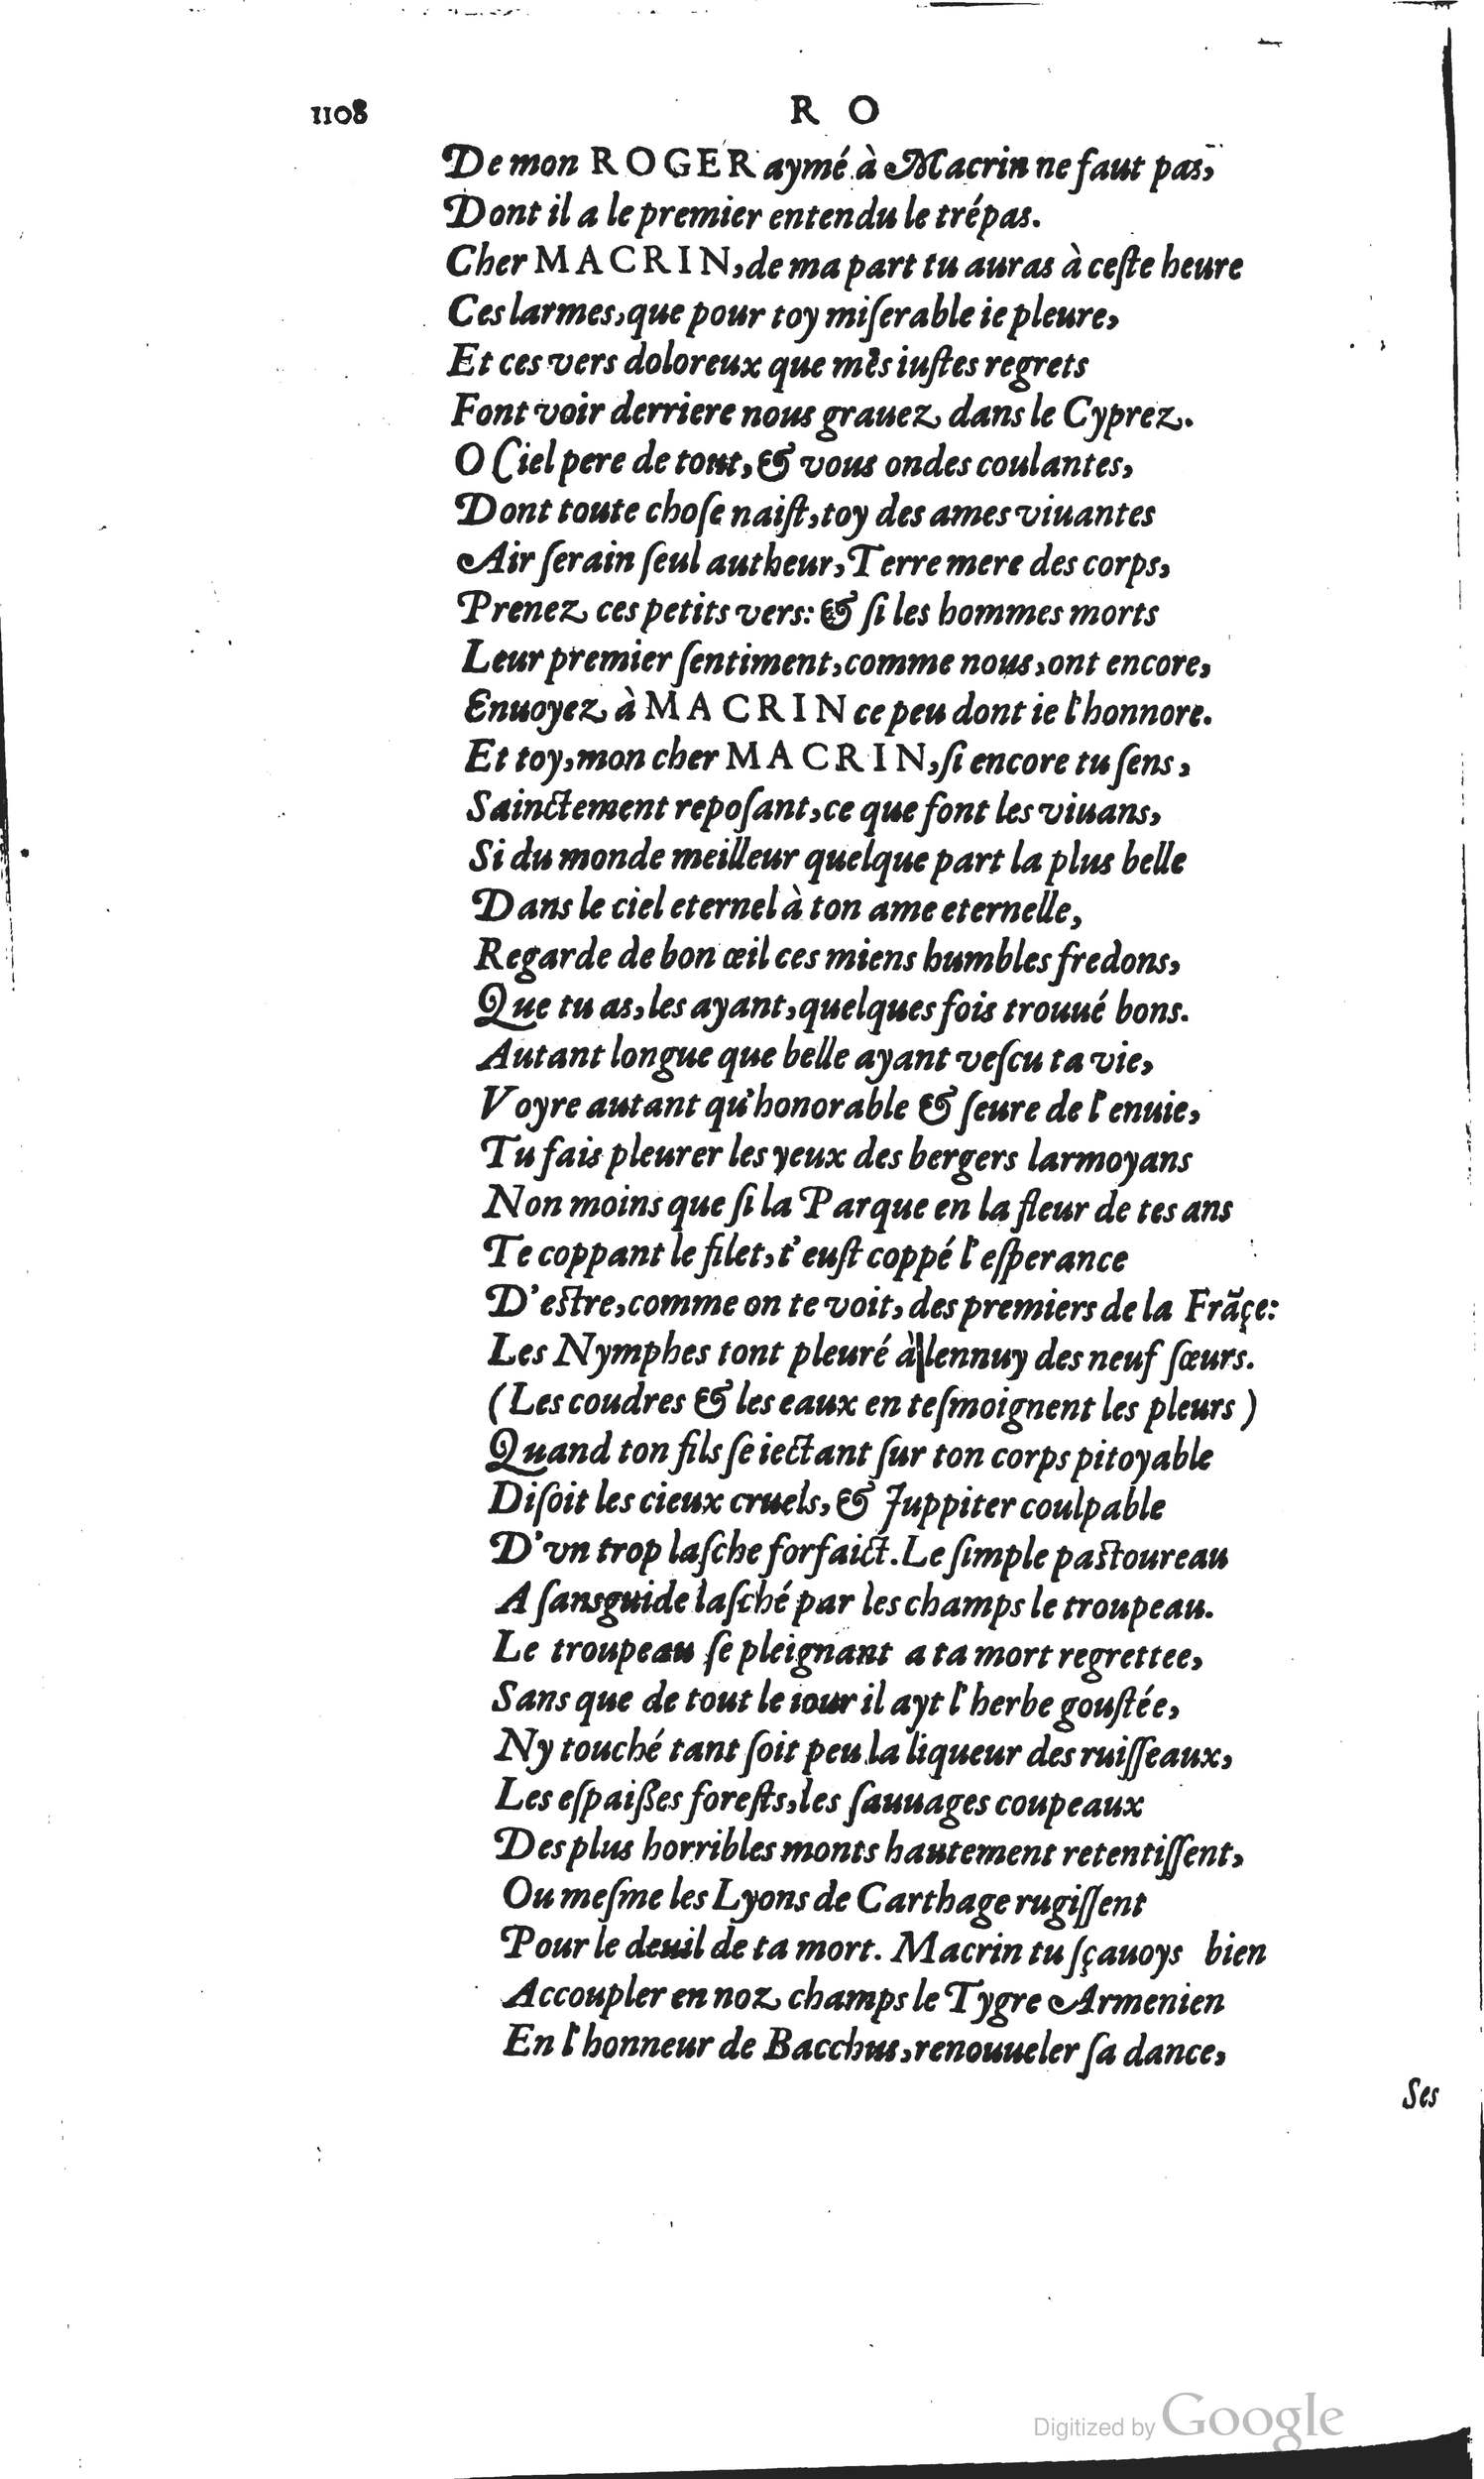 1108
R O
De mon ROGER aymé à Macrin ne faut pas,
Dont il a le premier entendu le trépas.
Cher MACRIN, de ma part tu auras à ceſte heure
Ces larmes, que pour toy miſerable ie pleure,
Et ces vers doloreux que mes iuſtes regrets
Font voir derriere nous grauez dans le Cyprez.
O Ciel pere de tout, & vous ondes coulantes,
Dont toute choſe naiſt, toy des ames viuantes
Air ſerain ſeul autheur, Terre mere des corps,
Prenez ces petits vers: & ſi les hommes morts
Leur premier ſentiment, comme nous, ont encore,
Enuoyez à MACRIN ce peu dont ie l'honnore.
Et toy, mon cher MACRIN, ſi encore tu ſens,
Sainctement repoſant, ce que font les viuans,
Si du monde meilleur quelque part la plus belle
Dans le ciel eternel à ton ame eternelle,
Regarde de bon œil ces miens humbles fredons,
Que tu as, les ayant, quelques fois trouué bons.
Autant longue que belle ayant veſcu ta vie,
Voyre autant qu'honorable & ſeure de l'enuie,
Tu fais pleurer les yeux des bergers larmoyans
Non moins que ſi la Parque en la fleur de tes ans
Te coppant le filet, t'euſt coppé l'eſperance
D'estre, comme on te voit, des premiers de la Frãçe:
Les Nymphes tont pleuré à lennuy des neuf ſœurs.
(Les coudres & les eaux en teſmoignent les pleurs)
Quand ton fils ſe iectant ſur ton corps pitoyable
Diſoit les cieux cruels, & Juppiter coulpable
D'vn trop laſche forfaict. Le ſimple pastoureau
A ſans guide laſché par les champs le troupeau.
Le troupeau ſe pleignant a ta mort regrettee,
Sans que de tout le iour il ayt l'herbe gouſtée,
Ny touché tant ſoit peu la liqueur des ruiſſeaux,
Les eſpaißes foreſts, les ſauuages coupeaux
Des plus horribles monts hautement retentiſſent,
Ou meſme les Lyons de Carthage rugiſſent
Pour le deuil de ta mort. Macrin tu ſçauoys bien
Accoupler en noz champs le Tygre Armenien
En l'honneur de Bacchus, renouueler ſa dance,
Ses
Digitized by Google